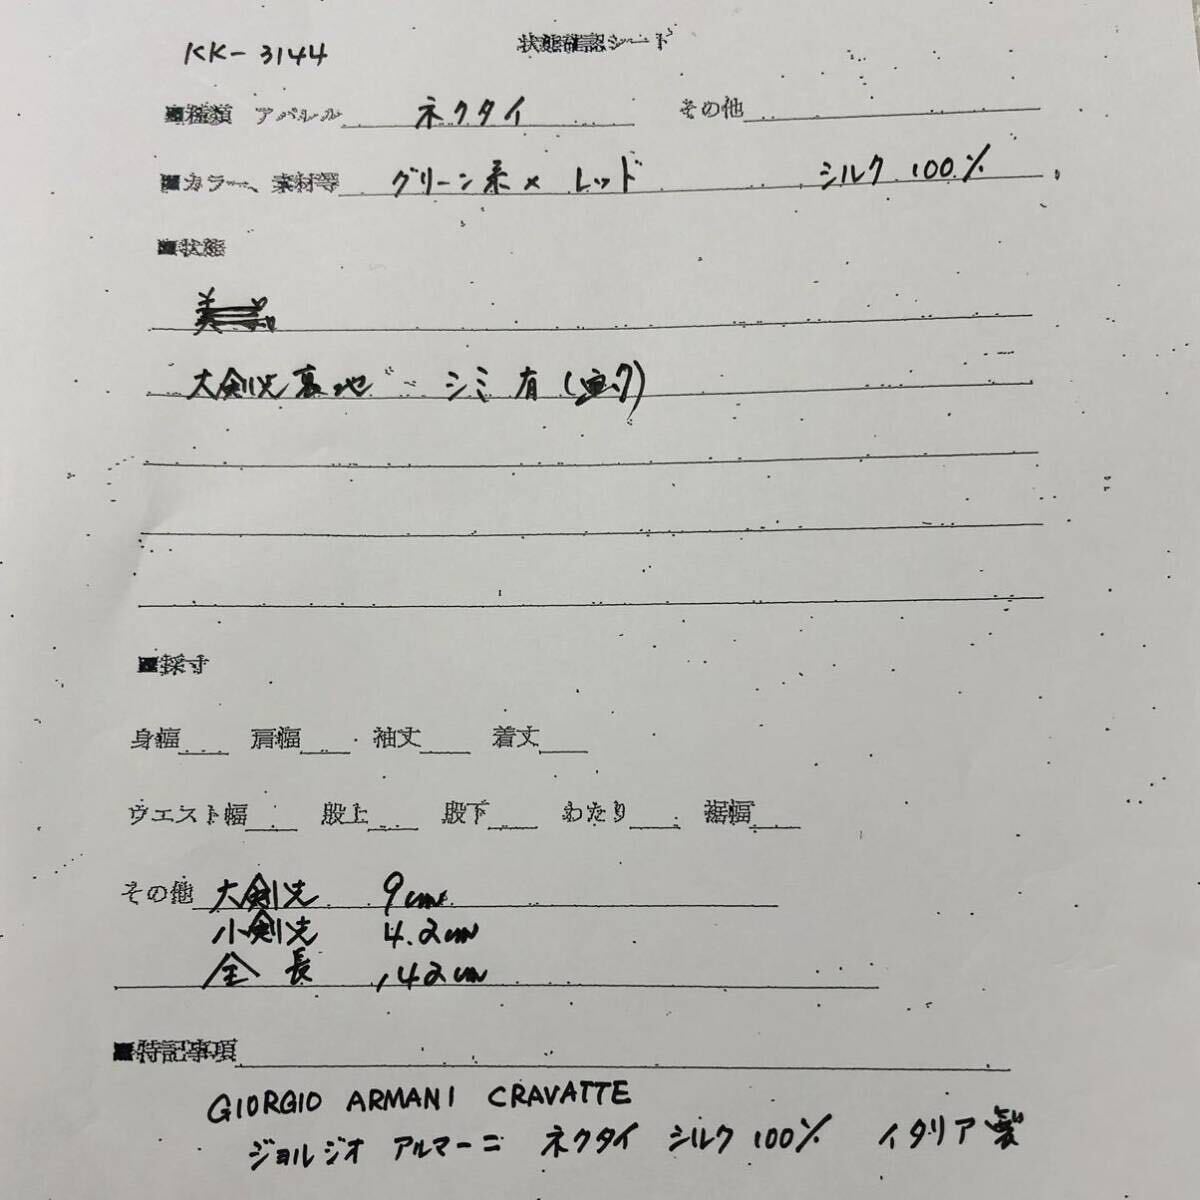 KK-3144
状態確認シート
■種類 アパレル ネクタイ その他
■カラー、素材等 グリーン系× レッド シルク 100%
■状態
大剣先裏地 シミ有
■採寸
身幅 肩幅 袖丈 着丈
ウエスト幅 股上 股下 わたり 裾幅
その他 大剣先 9cm
小剣先 4.2cm
全長 142cm
■特記事項
GIORGIO ARMANI CRAVATTE
ジョルジオ アルマーニ ネクタイ シルク 100% イタリア製